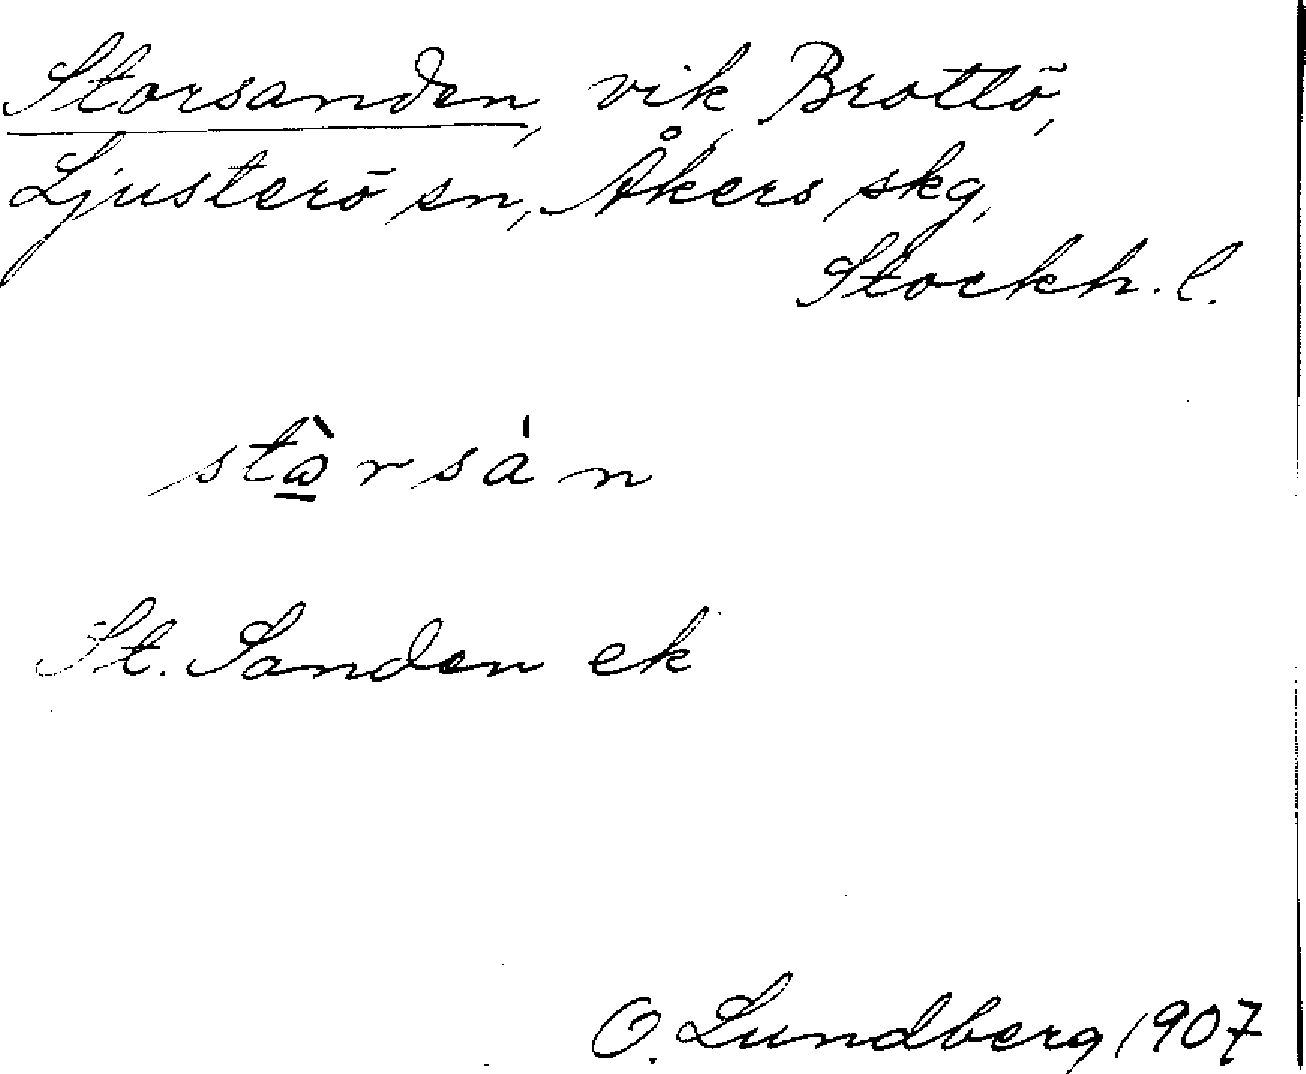 Storsanden, vik Brottö,
Ljusterö sn, Åkers skg,
Stockh. l.
stὼ̱rsȧ́n
St. Sanden ek
O. Lundberg 1907